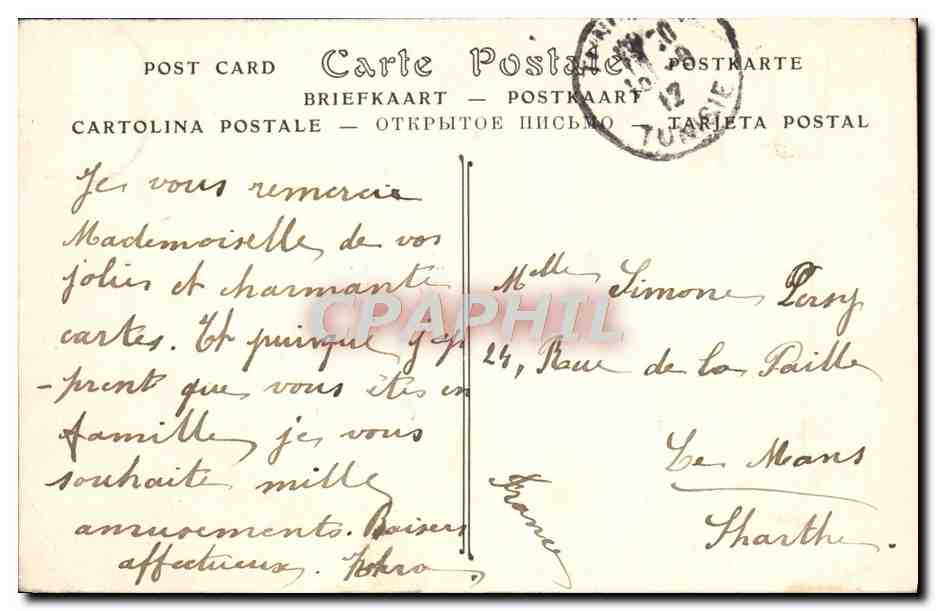 Carte Postale
POST CARD
POSTKARTE
BRIEFKAART — POSTKAART
CARTOLINA POSTALE — ОТКРЫТОЕ ПИСЬМО — TARJETA POSTAL
12
TUNISIE
Je vous remercie
Mademoiselle de vos
jolies et charmante
cartes. Et puisque j'ap
-prent que vous êtes en
famille, je vous
souhaite mille
amusements. Baisers
affectueux. Zohra.
Melle Simone Persy
24, Rue de la Paille
Le Mans
Sharthe.
France
CPAPHIL